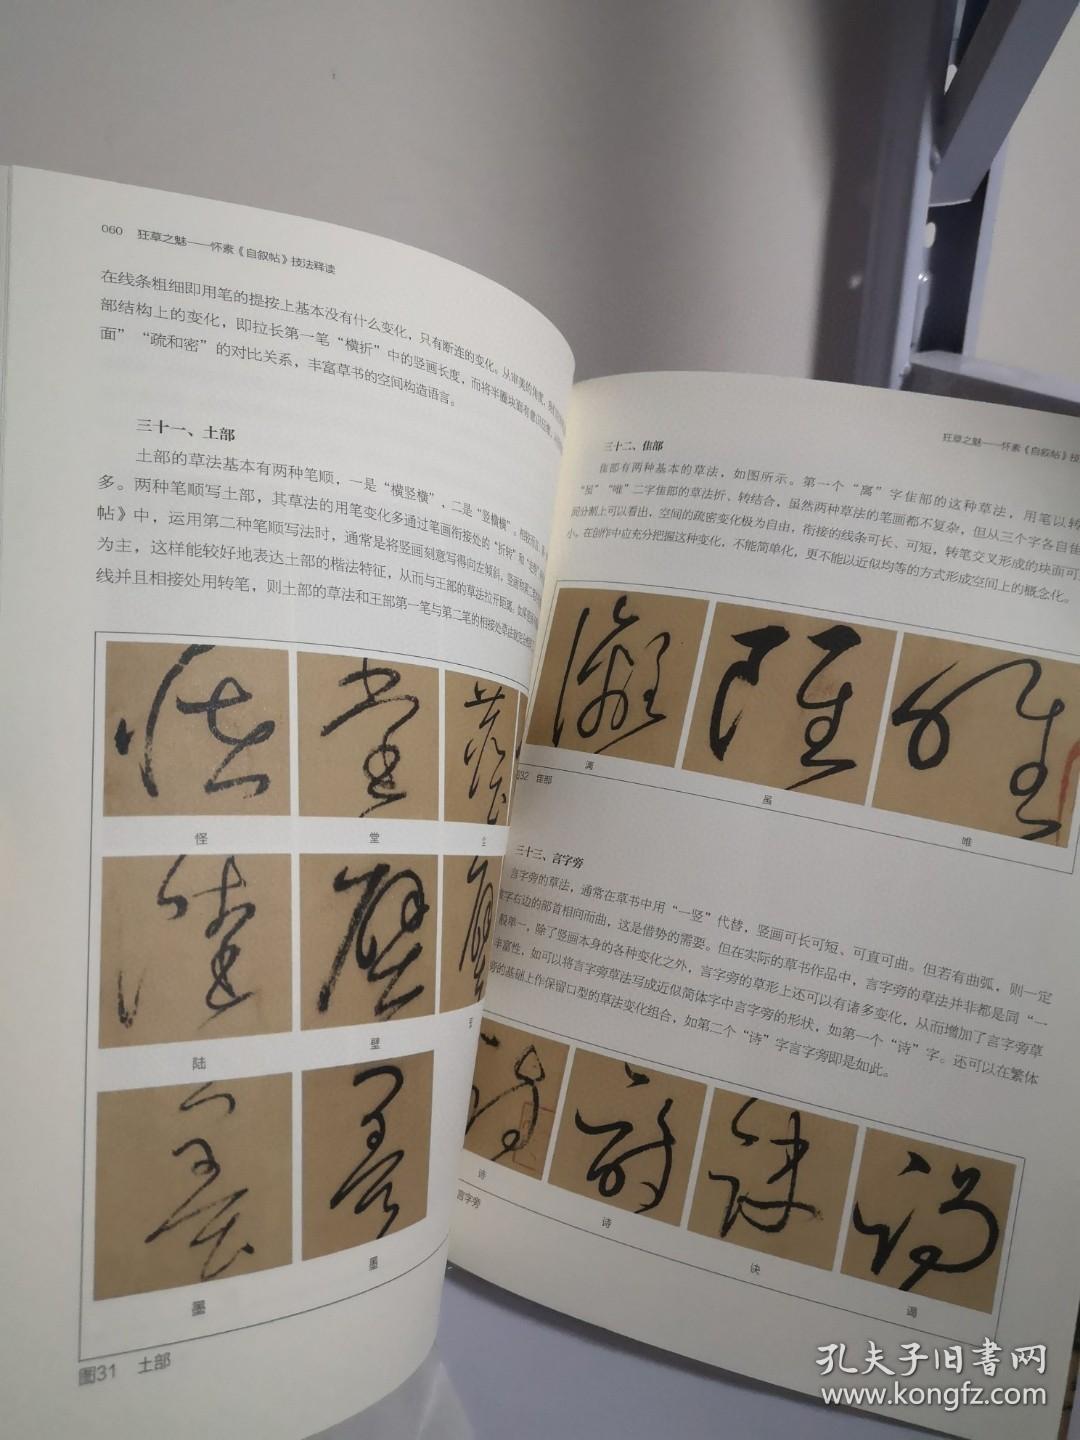 060 狂草之魅——怀素《自叙帖》技法释读
在线条粗细即用笔的提按上基本没有什么变化，只有断连的变化。从审美的角度，我
部结构上的变化，即拉长第一笔“横折”中的竖画长度，而将半圈块面有意
面”“疏和密”的对比关系，丰富草书的空间构造语言。
三十一、土部
土部的草法基本有两种笔顺，一是“横竖横”，二是“竖横横”。
多。两种笔顺写土部，其草法的用笔变化多通过笔画衔接处的“折转”和
帖》中，运用第二种笔顺写法时，通常是将竖画刻意写得向左倾斜，竖画和第二
为主，这样能较好地表达土部的楷法特征，从而与王部的草法拉开距离。如果
线并且相接处用转笔，则土部的草法和王部第一笔与第二笔的相接处草法
怪
堂
陆
壁
墨
墨
图31 土部
狂草之魅——怀素《自叙帖》技
三十二、隹部
隹部有两种基本的草法，如图所示。第一个“离”字隹部的这种草法，用笔以转
“虽”“唯”二字隹部的草法折、转结合，虽然两种草法的笔画都不复杂，但从三个字各自隹
间分割上可以看出，空间的疏密变化极为自由，衔接的线条可长、可短，转笔交叉形成的块面可
小。在创作中应充分把握这种变化，不能简单化，更不能以近似均等的方式形成空间上的概念化。
离
虽
唯
32 隹部
三十三、言字旁
言字旁的草法，通常在草书中用“一竖”代替，竖画可长可短、可直可曲。但若有曲弧，则一定
字右边的部首相向而曲，这是借势的需要。但在实际的草书作品中，言字旁的草法并非都是同“一
般单一，除了竖画本身的各种变化之外，言字旁的草形上还可以有诸多变化，从而增加了言字旁草
丰富性，如可以将言字旁草法写成近似简体字中言字旁的形状，如第一个“诗”字。还可以在繁体
旁的基础上作保留口型的草法变化组合，如第二个“诗”字言字旁即是如此。
诗
诗
诀
谒
言字旁
孔夫子旧書网
www.kongfz.com